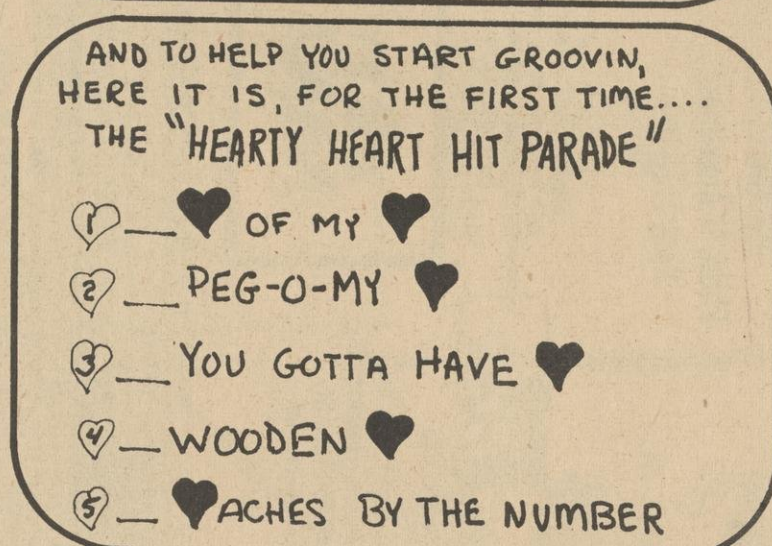 AND TO HELP YOU START GROOVIN,
HERE IT IS, FOR THE FIRST TIME....
THE "HEARTY HEART HIT PARADE"
1 __ ♥ OF MY ♥
2 __ PEG-O-MY ♥
3 __ YOU GOTTA HAVE ♥
4 __ WOODEN ♥
5 __ ♥ACHES BY THE NUMBER